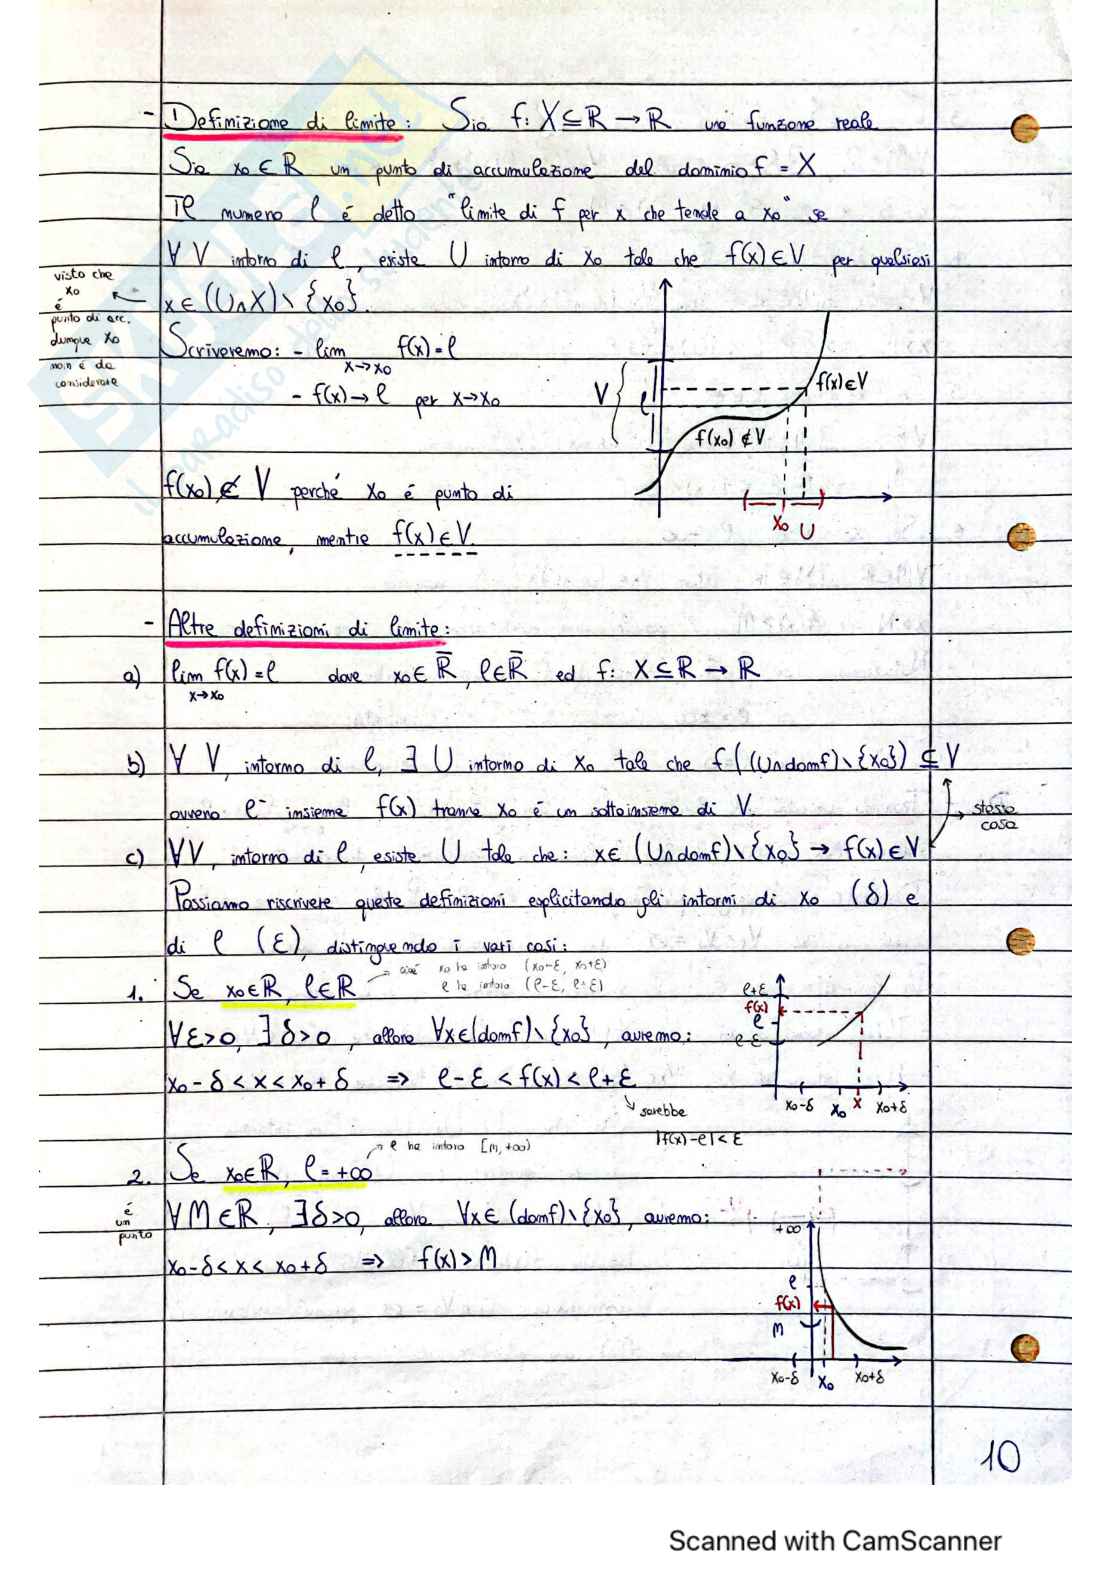 - Definizione di limite: Sia f: X⊆ℝ → ℝ una funzione reale
Sia x₀ ∈ ℝ un punto di accumulazione del dominio f = X
Il numero ℓ é detto "limite di f per x che tende a x₀" se
∀ V intorno di ℓ, existe U intorno di x₀ tale che f(x) ∈ V per qualsiasi
x ∈ (U∩X)∖{x₀}.
visto che
x₀
é
punto di acc.
dunque x₀
non é da
considerare
Scriveremo: - lim f(x) = ℓ
x→x₀
- f(x) → ℓ per x→x₀
V
ℓ
f(x)∈V
f(x₀) ∉ V
x₀ U
f(x₀) ∉ V perché x₀ é punto di
accumulazione, mentre f(x) ∈ V.
- Altre definizioni di limite:
a) lim f(x) = ℓ dove x₀ ∈ ℝ̅, ℓ∈ℝ̅ ed f: X ⊆ ℝ → ℝ
x→x₀
b) ∀ V, intorno di ℓ, ∃ U intorno di x₀ tale che f((U∩domf)∖{x₀}) ⊆ V
ovvero l'insieme f(x) tranne x₀ é un sottoinsieme di V.
stessa
cosa
c) ∀V, intorno di ℓ, esiste U tale che: x∈ (U∩domf)∖{x₀} → f(x) ∈ V
Possiamo riscrivere queste definizioni esplicitando gli intorni di x₀ (δ) e
di ℓ (ε), distinguendo i vari casi:
1. Se x₀∈ℝ, ℓ∈ℝ
cioé x₀ ha intorno (x₀-ε, x₀+ε)
ℓ ha intorno (ℓ-ε, ℓ+ε)
∀ε>0, ∃ δ>0, allora ∀x∈(domf)∖{x₀}, avremo:
x₀-δ < x < x₀+δ ⇒ ℓ-ε < f(x) < ℓ+ε
sarebbe
|f(x)-ℓ| < ε
ℓ+ε
f(x)
ℓ
ℓ-ε
x₀-δ x₀ x x₀+δ
2. Se x₀∈ℝ, ℓ = +∞
ℓ ha intorno [M, +∞)
é
un
punto
∀M∈ℝ, ∃δ>0, allora ∀x∈ (domf)∖{x₀}, avremo:
x₀-δ < x < x₀+δ ⇒ f(x) > M
+∞
ℓ
f(x)
M
x₀-δ x₀ x₀+δ
10
Scanned with CamScanner